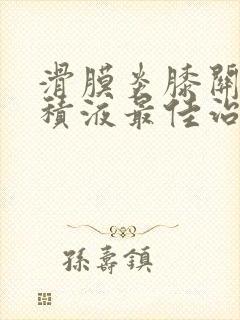 滑膜炎膝關
積液最佳治
孫壽鎮